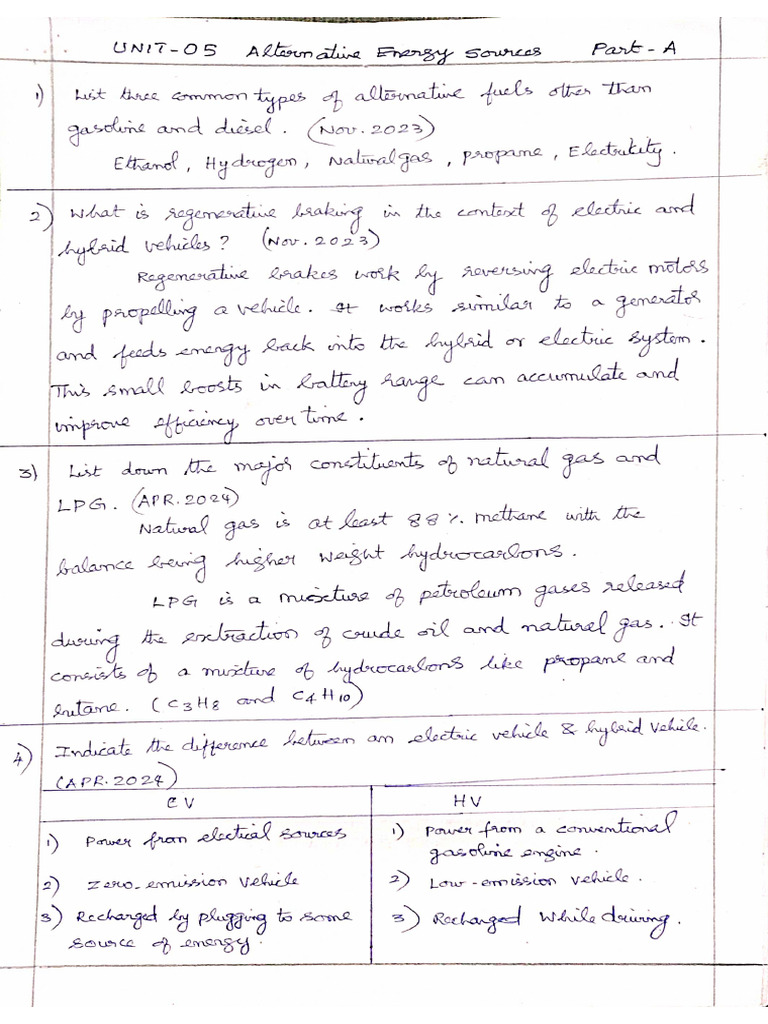 UNIT-05 Alternative Energy Sources Part-A
1) List three common types of alternative fuels other than
gasoline and diesel. (Nov. 2023)
Ethanol, Hydrogen, Natural gas, propane, Electrikity.
2) What is regenerative braking in the context of electric and
hybrid vehicles? (Nov. 2023)
Regenerative brakes work by reversing electric motors
by propelling a vehicle. It works similar to a generator
and feeds energy back into the hybrid or electric system.
This small boosts in battery range can accumulate and
improve efficiency over time.
3) List down the major constituents of natural gas and
LPG. (APR. 2024)
Natural gas is at least 88% methane with the
balance being higher weight hydrocarbons.
LPG is a mixture of petroleum gases released
during the extraction of crude oil and natural gas. It
consists of a mixture of hydrocarbons like propane and
butane. (C3H8 and C4H10)
4) Indicate the difference between an electric vehicle & hybrid vehicle.
(APR. 2024)
EV HV
1) Power from electical sources
1) Power from a conventional
gasoline engine.
2) Zero-emission vehicle
2) Low-emission vehicle.
3) Recharged by plugging to some
source of energy.
3) Recharged while driving.